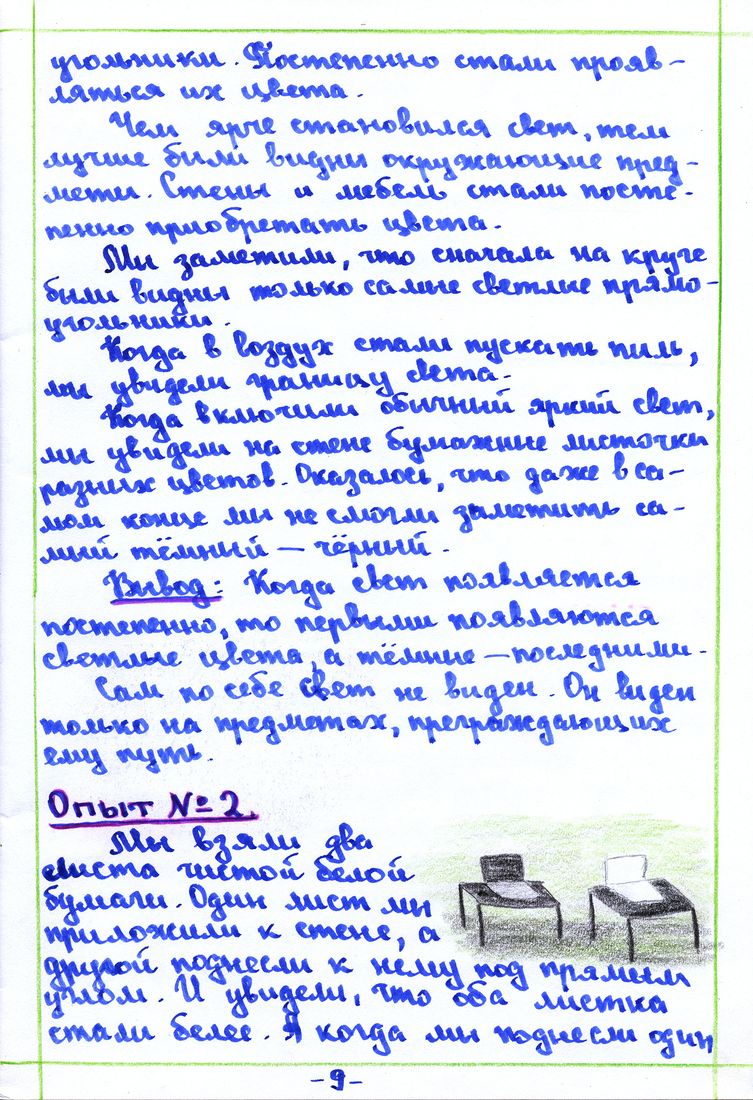 угольники. Постепенно стали прояв-
ляться их цвета.
Чем ярче становился свет, тем
лучше были видны окружающие пред-
меты. Стены и мебель стали посте-
пенно приобретать цвета.
Мы заметили, что сначала на круге
были видны только самые светлые прямо-
угольники.
Когда в воздух стали пускать пыль,
мы увидели границу света.
Когда включили обычный яркий свет,
мы увидели на стене бумажные листочки
разных цветов. Оказалось, что даже в са-
мом конце мы не смогли заметить са-
мый тёмный — чёрный.
Вывод: Когда свет появляется
постепенно, то первыми появляются
светлые цвета, а тёмные — последними.
Сам по себе свет не виден. Он виден
только на предметах, преграждающих
ему путь.
Опыт № 2.
Мы взяли два
листа чистой белой
бумаги. Один лист мы
приложили к стене, а
другой поднесли к нему под прямым
углом. И увидели, что оба листка
стали белее. А когда мы поднесли один
-9-